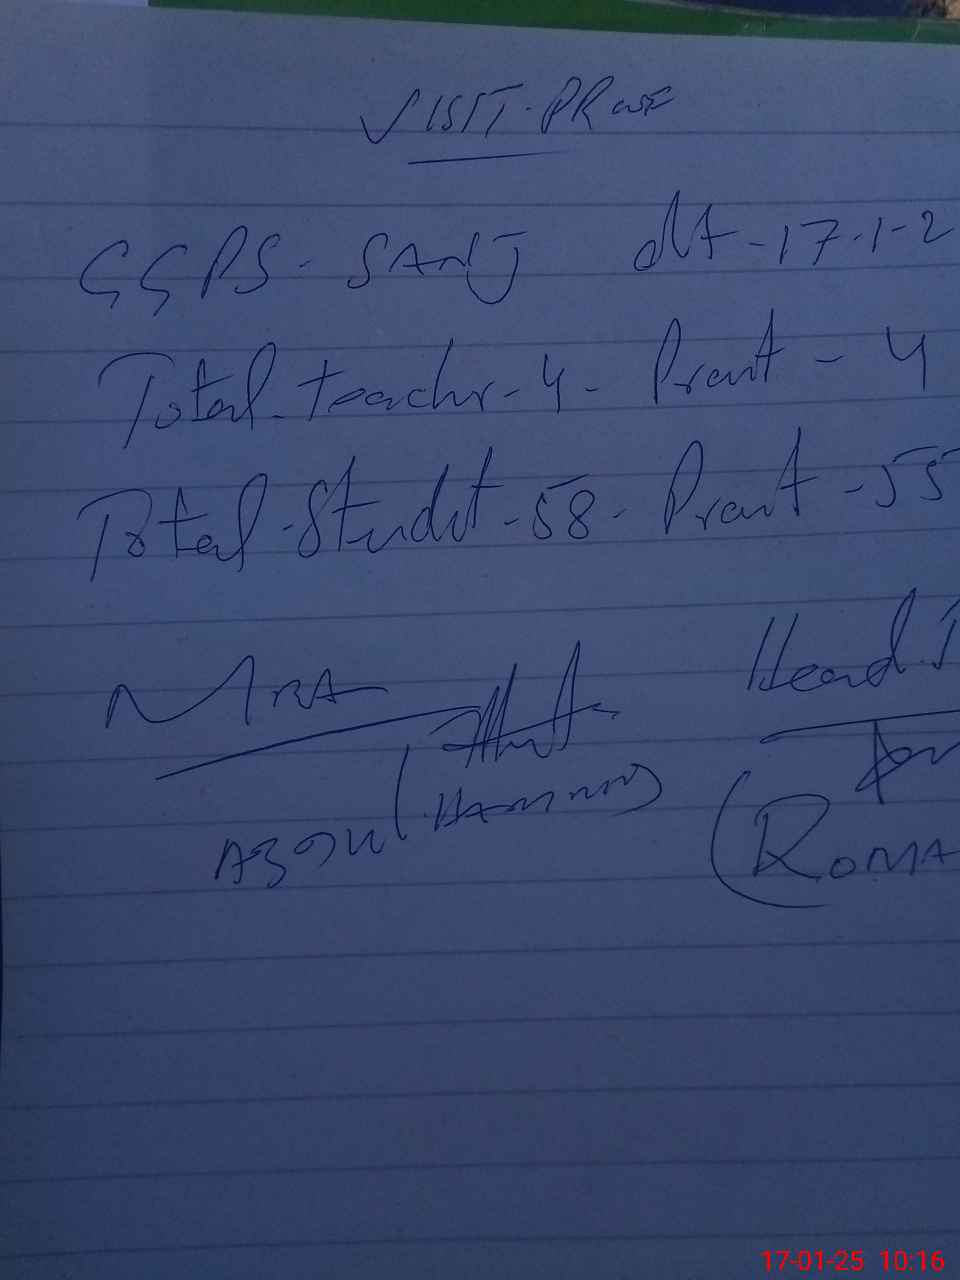 VISIT-PROOF
GGPS - SANJ dt - 17-1-2
Total teachr - 4 - Presnt - 4
Total - Studnt - 58 - Presnt - 55
MRA
Head T
ABDUL
(ROMA
17-01-25 10:16